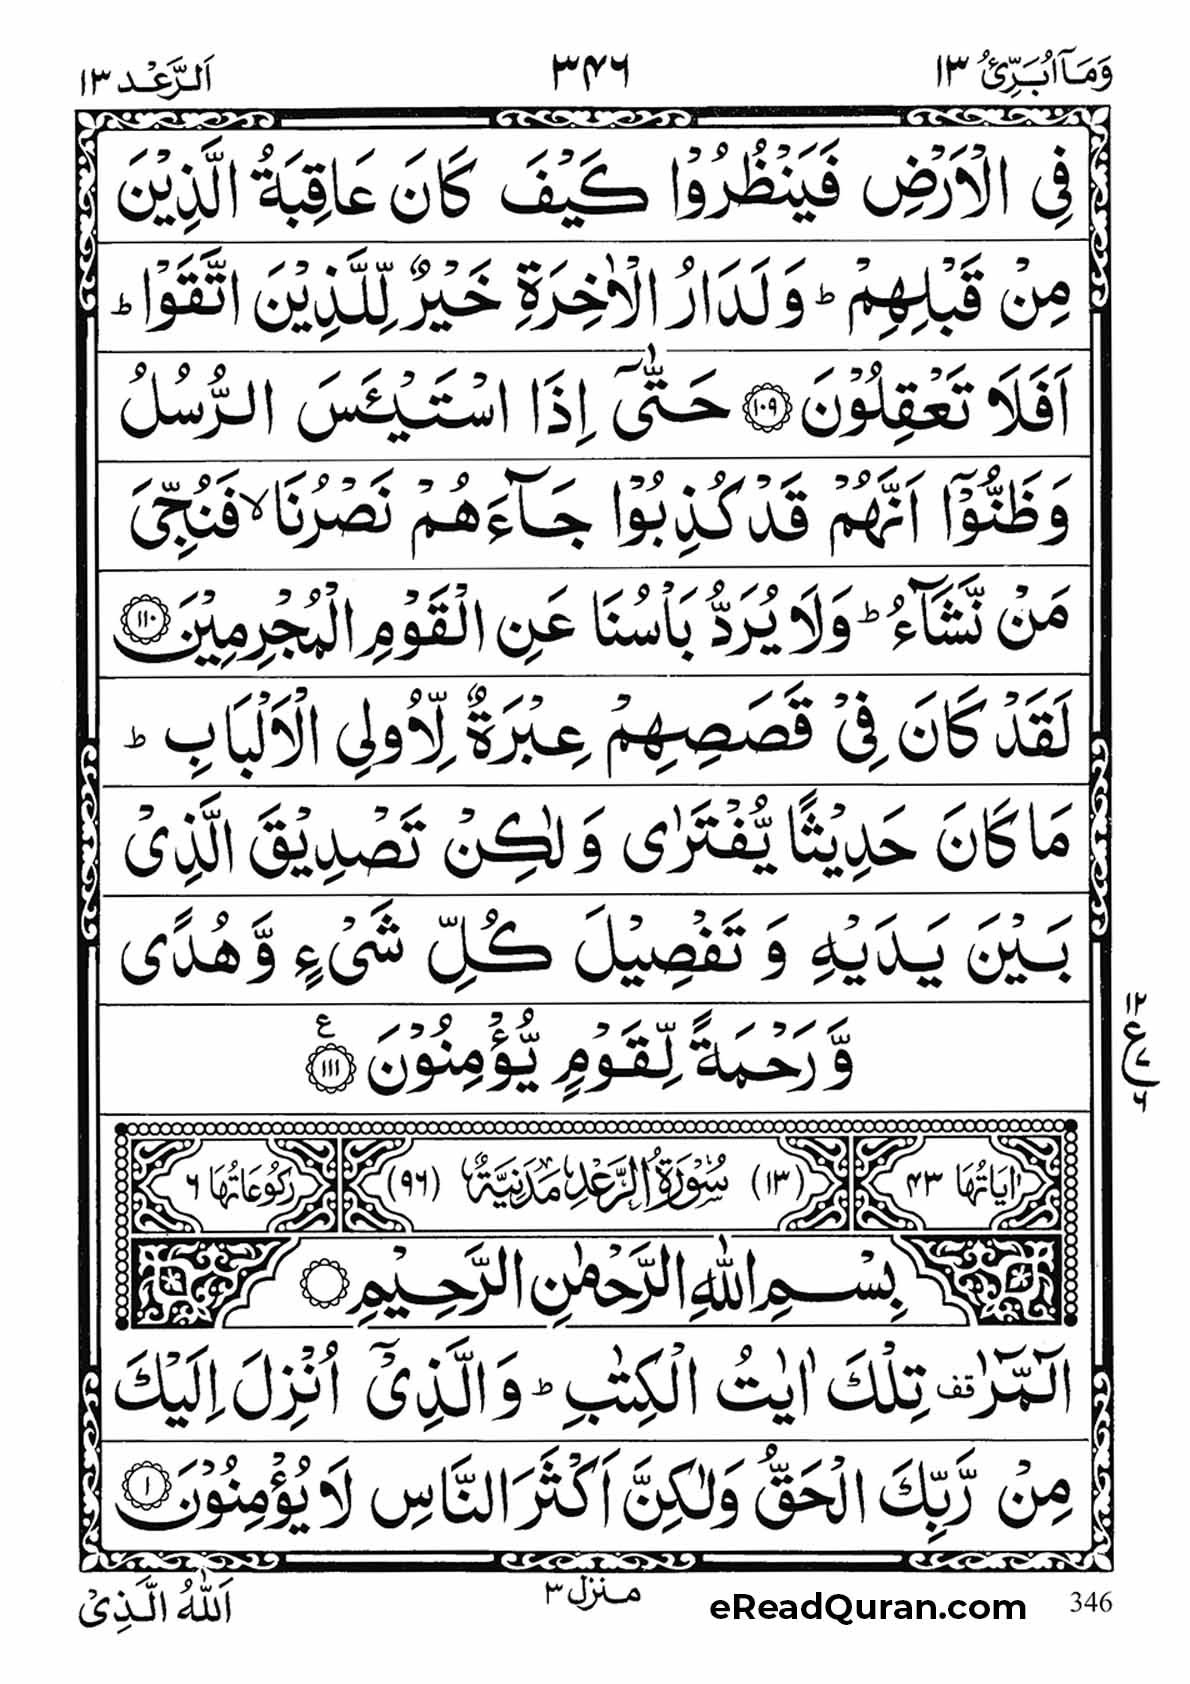 وَمَآ اُبَرِّئُ ١٣
٣۴۶
اَلرَّعْد ١٣
فِي الْاَرْضِ فَيَنْظُرُوْا كَيْفَ كَانَ عَاقِبَةُ الَّذِيْنَ
مِنْ قَبْلِهِمْ ؕ وَلَدَارُ الْاٰخِرَةِ خَيْرٌ لِّلَّذِيْنَ اتَّقَوْا ؕ
اَفَلَا تَعْقِلُوْنَ ١٠٩ حَتّٰٓى اِذَا اسْتَيْـَٔسَ الرُّسُلُ
وَظَنُّوْٓا اَنَّهُمْ قَدْ كُذِبُوْا جَآءَهُمْ نَصْرُنَا ۙ فَنُجِّيَ
مَنْ نَّشَآءُ ؕ وَلَا يُرَدُّ بَاْسُنَا عَنِ الْقَوْمِ الْمُجْرِمِيْنَ ١١٠
لَقَدْ كَانَ فِيْ قَصَصِهِمْ عِبْرَةٌ لِّاُولِي الْاَلْبَابِ ؕ
مَا كَانَ حَدِيْثًا يُّفْتَرٰى وَلٰكِنْ تَصْدِيْقَ الَّذِيْ
بَيْنَ يَدَيْهِ وَتَفْصِيْلَ كُلِّ شَيْءٍ وَّهُدًى
وَّرَحْمَةً لِّقَوْمٍ يُّؤْمِنُوْنَ ١١١ ع
١٢
ع
٧
٦
اٰيَاتُهَا ۴٣
(١٣) سُوْرَةُ الرَّعْدِ مَدَنِيَّةٌ (٩٦)
رُكُوْعَاتُهَا ٦
بِسْمِ اللّٰهِ الرَّحْمٰنِ الرَّحِيْمِ
الٓمّٓرٰ قف تِلْكَ اٰيٰتُ الْكِتٰبِ ؕ وَالَّذِيْٓ اُنْزِلَ اِلَيْكَ
مِنْ رَّبِّكَ الْحَقُّ وَلٰكِنَّ اَكْثَرَ النَّاسِ لَا يُؤْمِنُوْنَ ١
346
eReadQuran.com
منزل ٣
اَللّٰهُ الَّذِيْ